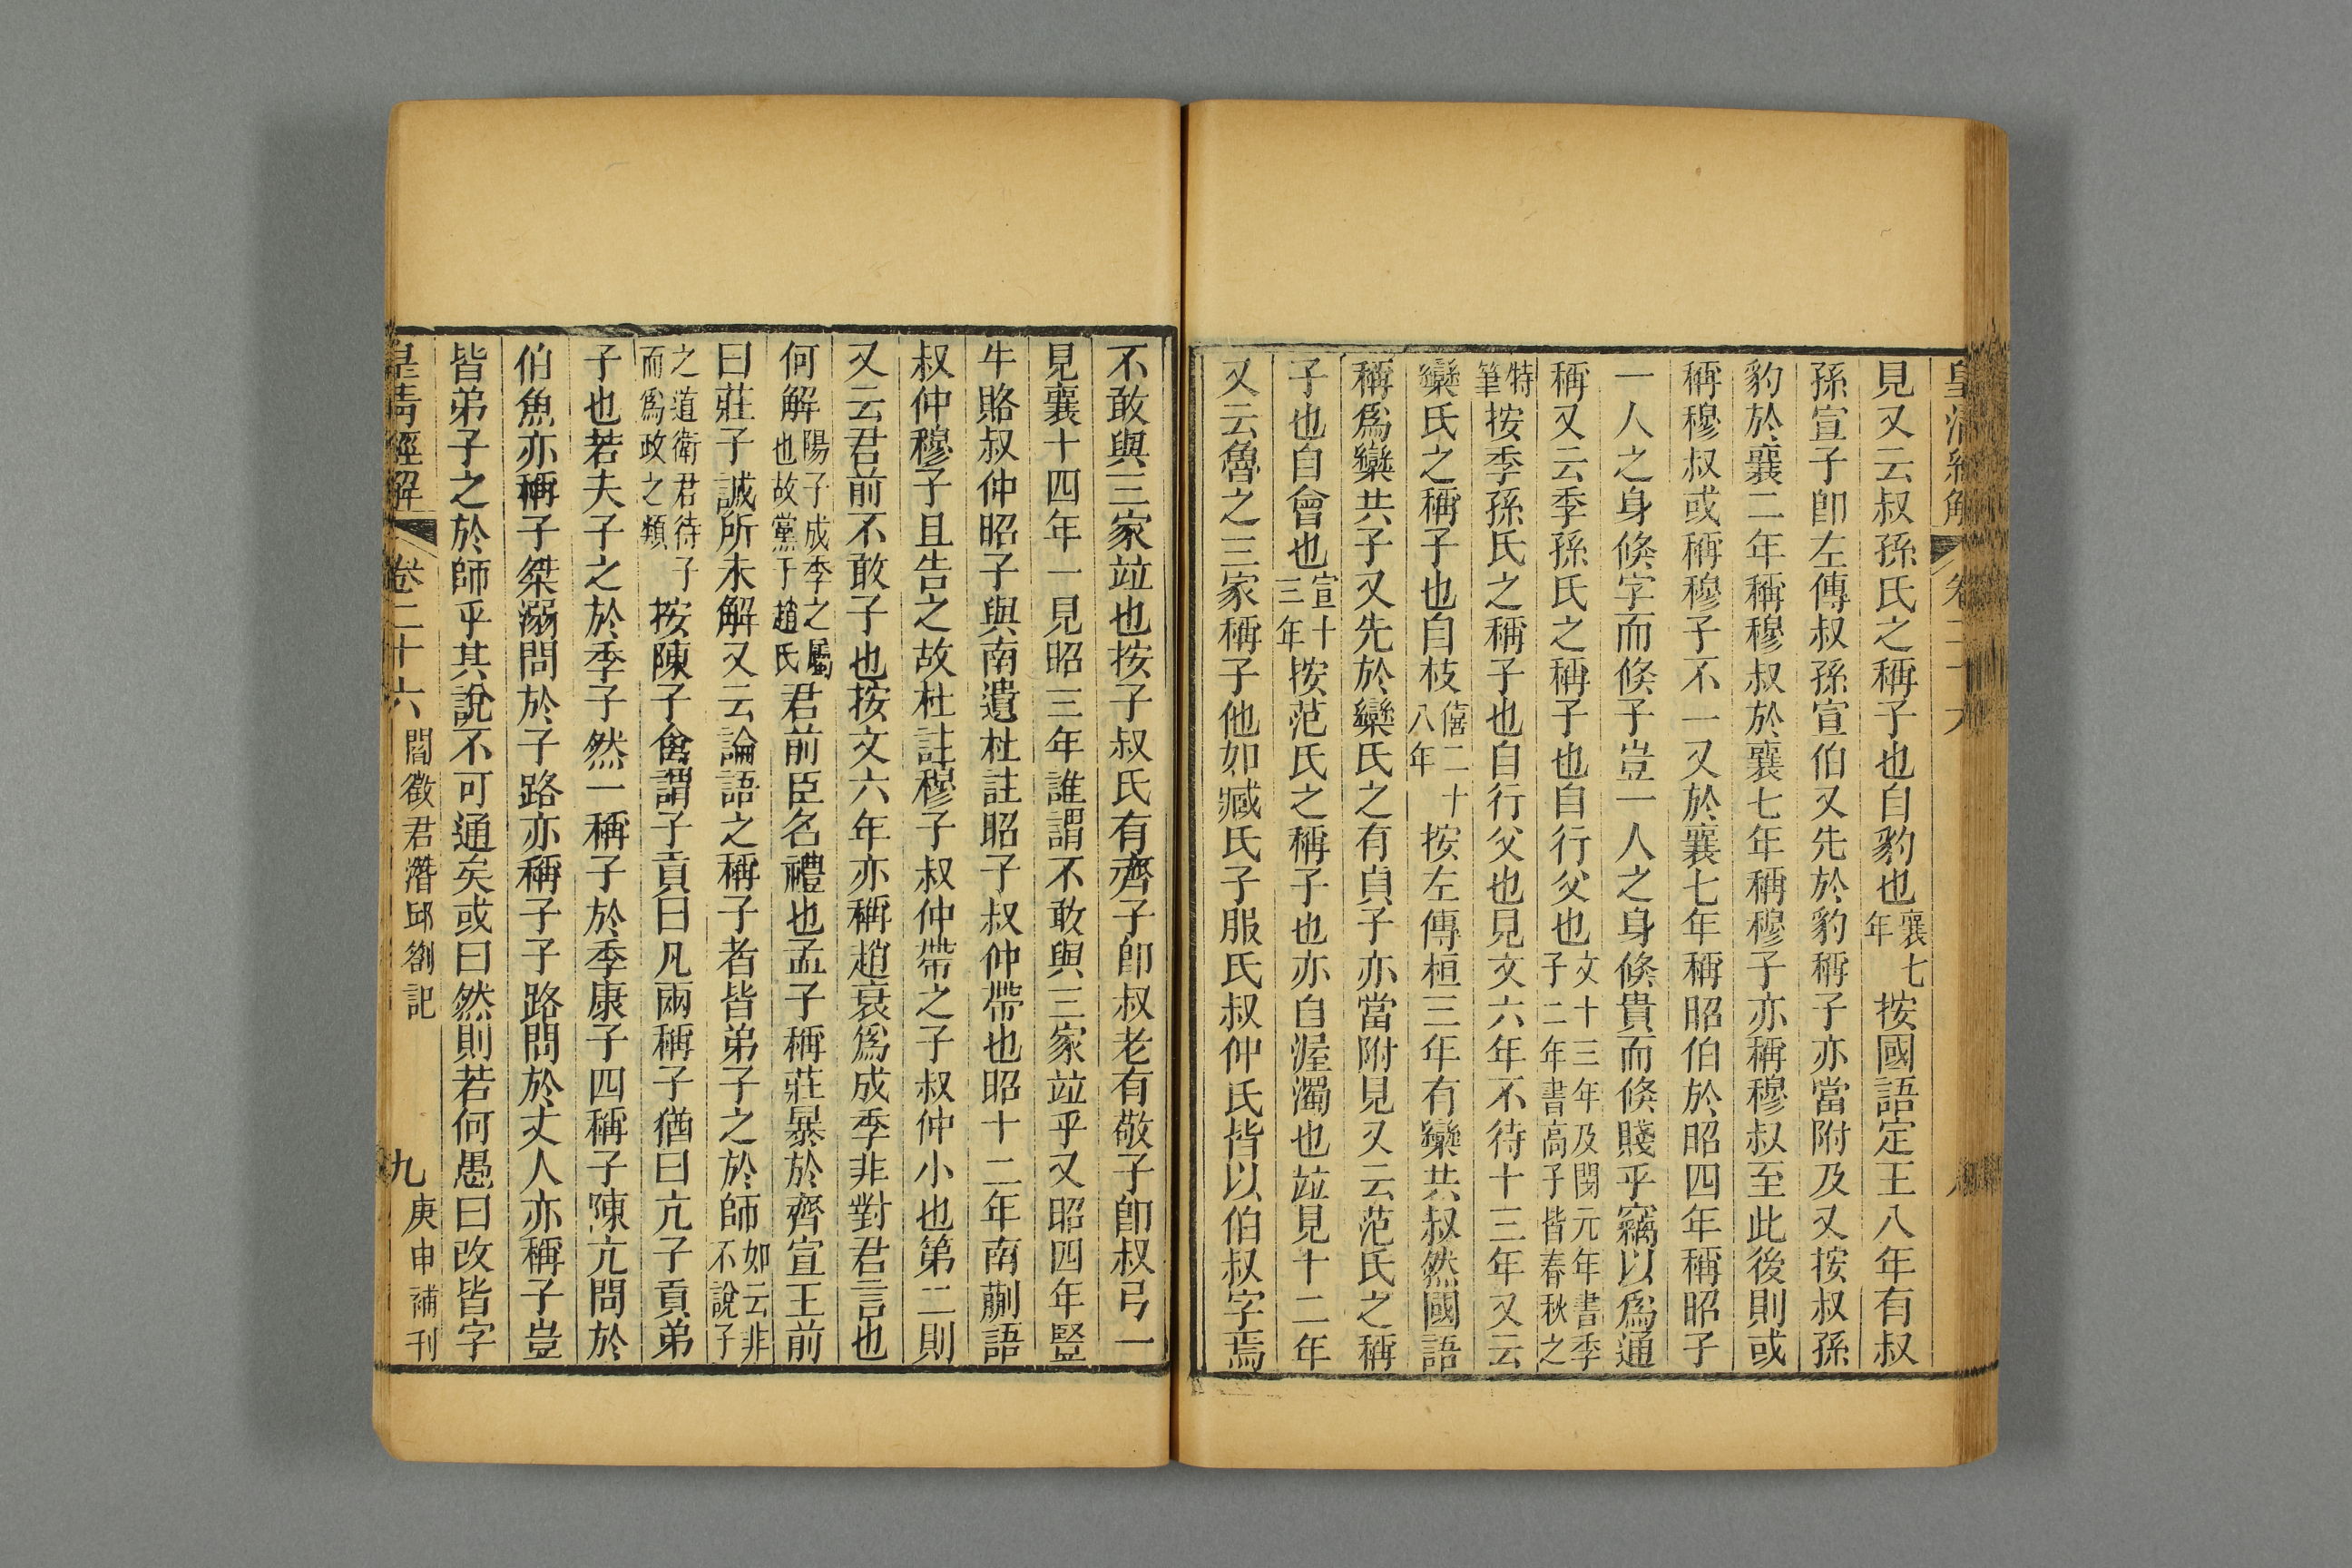 皇清經解 卷二十六 八
見又云叔孫氏之稱子也自豹也襄七年按國語定王八年有叔
孫宣子卽左傳叔孫宣伯又先於豹稱子亦當附及又按叔孫
豹於襄二年稱穆叔於襄七年稱穆子亦稱穆叔至此後則或
稱穆叔或稱穆子不一又於襄七年稱昭伯於昭四年稱昭子
一人之身倏字而倏子豈一人之身倏貴而倏賤乎竊以爲通
稱又云季孫氏之稱子也自行父也文十三年及閔元年書季子二年書高子皆春秋之
特筆按季孫氏之稱子也自行父也見文六年不待十三年又云
欒氏之稱子也自枝僖二十八年按左傳桓三年有欒共叔然國語
稱爲欒共子又先於欒氏之有貞子亦當附見又云范氏之稱
子也自會也宣十三年按范氏之稱子也亦自渥濁也竝見十二年
又云魯之三家稱子他如臧氏子服氏叔仲氏皆以伯叔字焉
不敢與三家竝也按子叔氏有齊子卽叔老有敬子卽叔弓一
見襄十四年一見昭三年誰謂不敢與三家竝乎又昭四年豎
牛賂叔仲昭子與南遺杜註昭子叔仲帶也昭十二年南蒯語
叔仲穆子且告之故杜註穆子叔仲帶之子叔仲小也第二則
又云君前不敢子也按文六年亦稱趙衰爲成季非對君言也
何解陽子成季之屬也故黨于趙氏君前臣名禮也孟子稱莊暴於齊宣王前
曰莊子誠所未解又云論語之稱子者皆弟子之於師如云非不說子
之道衛君待子而爲政之類按陳子禽謂子貢曰凡兩稱子猶曰亢子貢弟
子也若夫子之於季子然一稱子於季康子四稱子陳亢問於
伯魚亦稱子桀溺問於子路亦稱子子路問於丈人亦稱子豈
皆弟子之於師乎其說不可通矣或曰然則若何愚曰改皆字
皇清經解 卷二十六 閻徵君潛邱劄記 九 庚申補刊